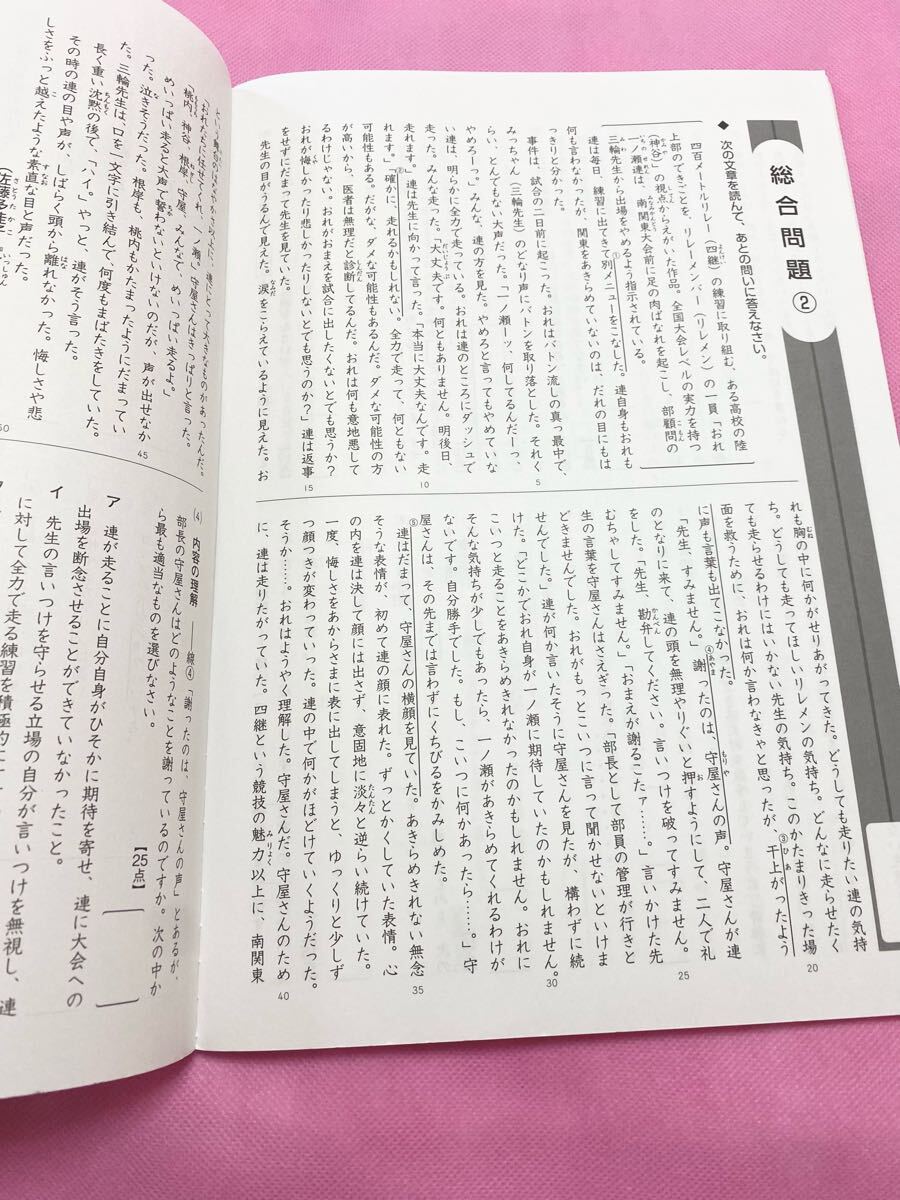 総合問題 ②
◆ 次の文章を読んで、あとの問いに答えなさい。
四百メートルリレー(四継)の練習に取り組む、ある高校の陸
上部のできごとを、リレーメンバー(リレメン)の一員「おれ
(神谷)」の視点からえがいた作品。全国大会レベルの実力を持つ
一ノ瀬連は、南関東大会前に足の肉ばなれを起こし、部顧問の
三輪先生から出場をやめるよう指示されている。
連は毎日、練習に出てきて別メニューをこなした。連自身もおれも
何も言わなかったが、関東をあきらめていないのは、だれの目にもは
っきりと分かった。
事件は、試合の二日前に起こった。おれはバトン流しの真っ最中で、
みっちゃん(三輪先生)のどなり声にバトンを取り落とした。それく
らい、とんでもない大声だった。「一ノ瀬ーッ、何してるんだーっ、
やめろーっ。」みんな、連の方を見た。やめろと言ってもやめていな
い連は、明らかに全力で走っている。おれは連のところにダッシュで
走った。みんな走った。「大丈夫です。何ともありません。明後日、
走れます。」連は先生に向かって言った。「本当に大丈夫なんです。走
れます。」「②確かに、走れるかもしれない。全力で走って、何ともない
可能性もある。だがな、ダメな可能性もあるんだ。ダメな可能性の方
が高いから、医者は無理だと診断してるんだ。おれは何も意地悪して
るわけじゃない。おれがおまえを試合に出したくないとでも思うか?
おれが悔しかったり悲しかったりしないとでも思うのか?」連は返事
をせずにだまって先生を見ていた。
先生の目がうるんで見えた。涙をこらえているように見えた。お
れも胸の中に何かがせりあがってきた。どうしても走りたい連の気持
ち。どうしても走ってほしいリレメンの気持ち。どんなに走らせたく
ても走らせるわけにはいかない先生の気持ち。このかたまりきった場
面を救うために、おれは何か言わなきゃと思ったが、③干上がったよう
に声も言葉も出てこなかった。
「先生、すみません。」④謝ったのは、守屋さんの声。守屋さんが連
のとなりに来て、連の頭を無理やりぐいと押すようにして、二人で礼
をした。「先生、勘弁してください。言いつけを破ってすみません。
むちゃしてすみません。」「おまえが謝るこたァ……。」言いかけた先
生の言葉を守屋さんはさえぎった。「部長として部員の管理が行きと
どきませんでした。おれがもっとこいつに言って聞かせないといけま
せんでした。」連が何か言いたそうに守屋さんを見たが、構わずに続
けた。「どこかでおれ自身が一ノ瀬に期待していたのかもしれません。
こいつと走ることをあきらめきれなかったのかもしれません。おれに
そんな気持ちが少しでもあったら、一ノ瀬があきらめてくれるわけが
ないです。自分勝手でした。もし、こいつに何かあったら……。」守
屋さんは、その先までは言わずにくちびるをかみしめた。
⑤連はだまって、守屋さんの横顔を見ていた。あきらめきれない無念
そうな表情が、初めて連の顔に表れた。ずっとかたくしていた表情。心
の内を連は決して顔には出さず、意固地に淡々と逆らい続けていた。
一度、悔しさをあからさまに表に出してしまうと、ゆっくりと少しず
つ顔つきが変わっていった。連の中で何かがほどけていくようだった。
そうか……。おれはようやく理解した。守屋さんだ。守屋さんのため
に、連は走りたがっていた。四継という競技の魅力以上に、南関東
連にとって大きなものがあったんだ。
「おれたちに任せてくれ、一ノ瀬。」守屋さんはきっぱりと言った。
「桃内、神谷、根岸、守屋、みんなで、めいっぱい走るよ。」
めいっぱい走ると大声で誓わないといけないのだが、声が出せなか
った。泣きそうだった。根岸も、桃内もかたまったようにだまってい
た。三輪先生は、口を一文字に引き結んで、何度もまばたきをしていた。
長く重い沈黙の後で、「ハイ。」やっと、連がそう言った。
その時の連の目や声が、しばらく頭から離れなかった。悔しさや悲
しさをふっと越えたような素直な目と声だった。
5
10
15
20
25
30
35
40
45
50
(4) 内容の理解 ――線④「謝ったのは、守屋さんの声」とあるが、
部長の守屋さんはどのようなことを謝っているのですか。次の中か
ら最も適当なものを選びなさい。
【25点】
ア 連が走ることに自分自身がひそかに期待を寄せ、連に大会への
出場を断念させることができていなかったこと。
イ 先生の言いつけを守らせる立場の自分が言いつけを無視し、連
に対して全力で走る練習を積極的に